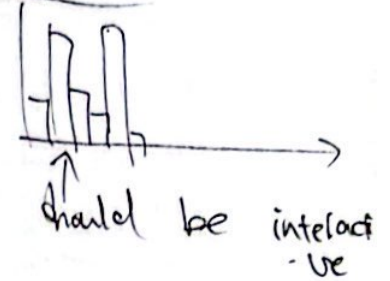 should be interacti
-ve